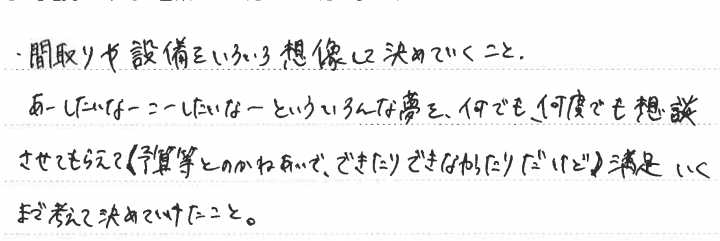 ・間取りや設備をいろいろ想像して決めていくこと.
あーしたいなーこーしたいなーといういろんな夢を、何でも、何度でも想談
させてもらえて(予算等とのかねあいで、できたりできなかったりだけど)満足いく
まで考えて決めていけたこと。